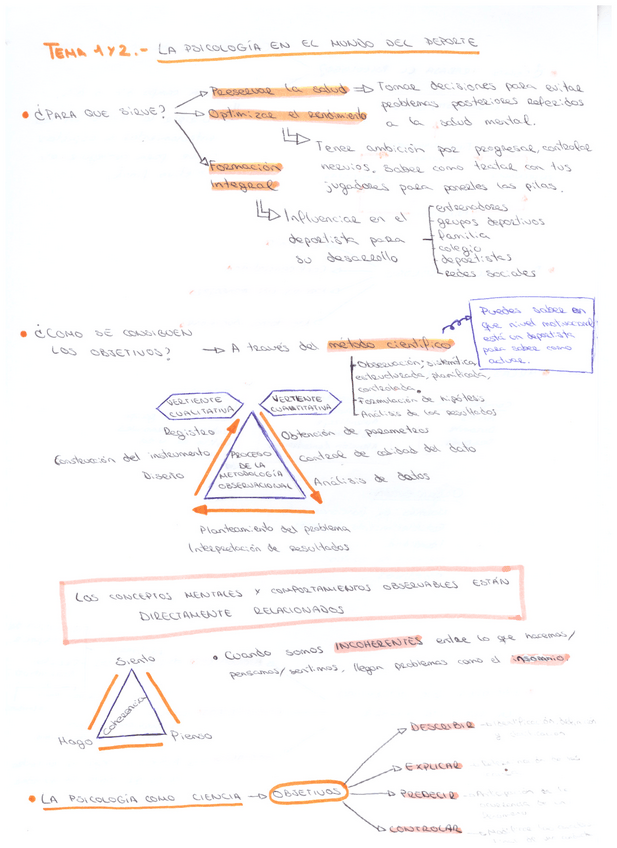 TEMA 1 Y 2.- LA PSICOLOGÍA EN EL MUNDO DEL DEPORTE
• ¿PARA QUE SIRVE?
Preservar la salud ⇒ Tomar decisiones para evitar
problemas posteriores referidos
a la salud mental.
Optimizar el rendimiento
Tener ambición por progresar, controlar
nervios, saber como tratar con tus
jugadores para ponerles las pilas.
Formación
Integral
Influenciar en el
deportista para
su desarrollo
entrenadores
grupos deportivos
familia
colegio
deportistas
redes sociales
• ¿COMO SE CONSIGUEN
LOS OBJETIVOS?
→ A través del método científico
Puedes saber en
que nivel motivacional
está un deportista
para saber como
actuar.
- Observación; sistemática,
estructurada, planificada,
controlada.
- Formulación de hipótesis
- Análisis de los resultados
VERTIENTE
CUALITATIVA
VERTIENTE
CUANTITATIVA
Registro
Construcción del instrumento
Diseño
PROCESO
DE LA
METODOLOGÍA
OBSERVACIONAL
Obtención de parametros
Control de calidad del dato
Análisis de datos
Planteamiento del problema
Interpretación de resultados
LOS CONCEPTOS MENTALES Y COMPORTAMIENTOS OBSERVABLES ESTÁN
DIRECTAMENTE RELACIONADOS
• Cuando somos INCOHERENTES entre lo que hacemos/
pensamos/sentimos, llegan problemas como el insomnio.
Siento
Coherencia
Hago
Pienso
• LA PSICOLOGÍA COMO CIENCIA → OBJETIVOS
DESCRIBIR
EXPLICAR
PREDECIR
CONTROLAR